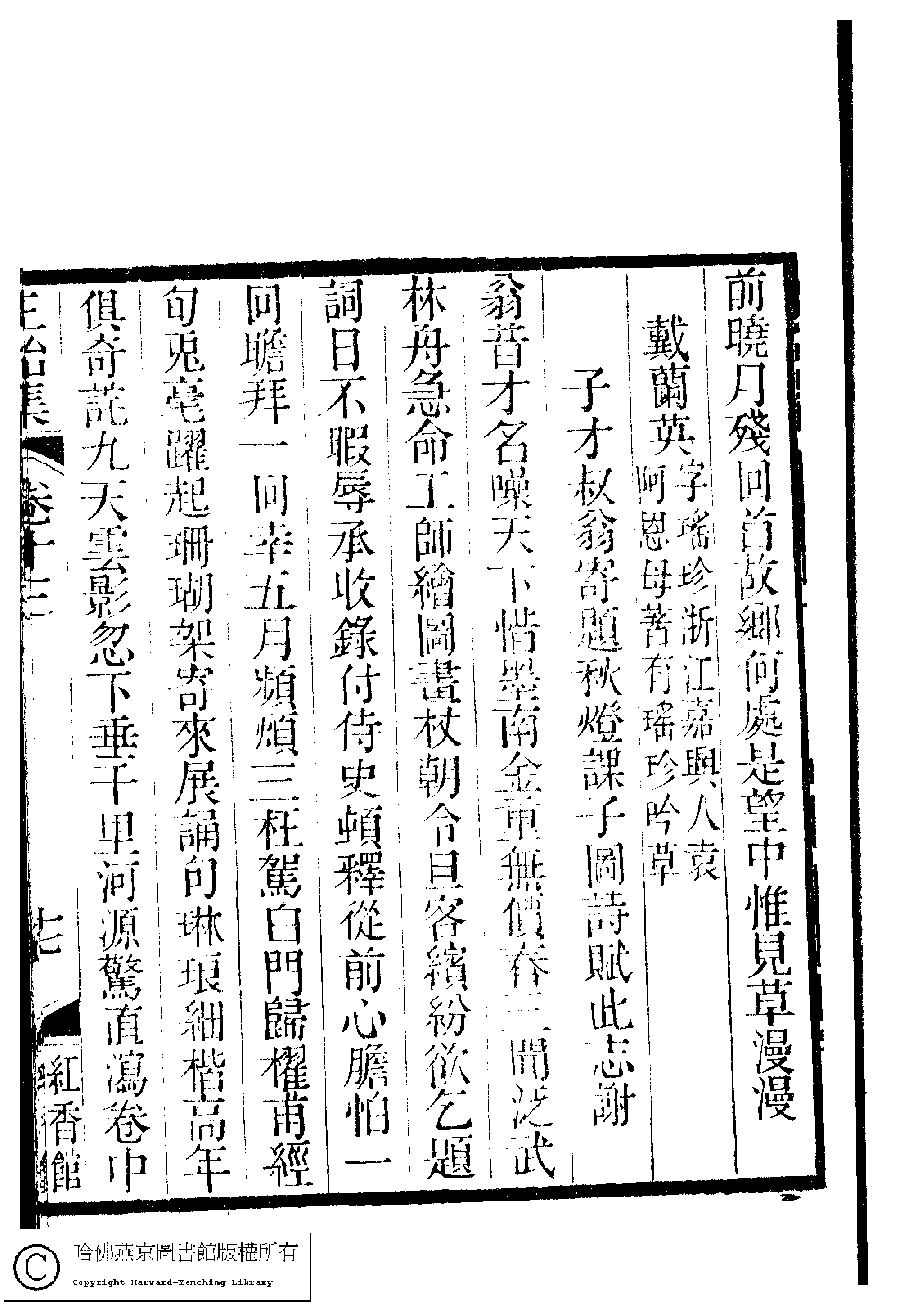 前曉月殘回首故鄉何處是望中惟見草漫漫
戴蘭英
字瑤珍浙江嘉興人袁
阿恩母著有瑤珍吟草
子才叔翁寄題秋燈課子圖詩賦此志謝
翁昔才名噪天下惜墨南金重無價春三聞泛武
林舟急命工師繪圖畫杖朝令旦客繽紛欲乞題
詞日不暇辱承收錄付侍史頓釋從前心膽怕一
回瞻拜一回幸五月頻煩三枉駕白門歸櫂甫經
旬兎毫躍起珊瑚架寄來展誦句琳琅細楷高年
俱奇詫九天雲影忽下垂千里河源驚直瀉卷中
正始集
卷十三
十七
紅香館
哈佛燕京圖書館版權所有
Copyright Harvard-Yenching Library